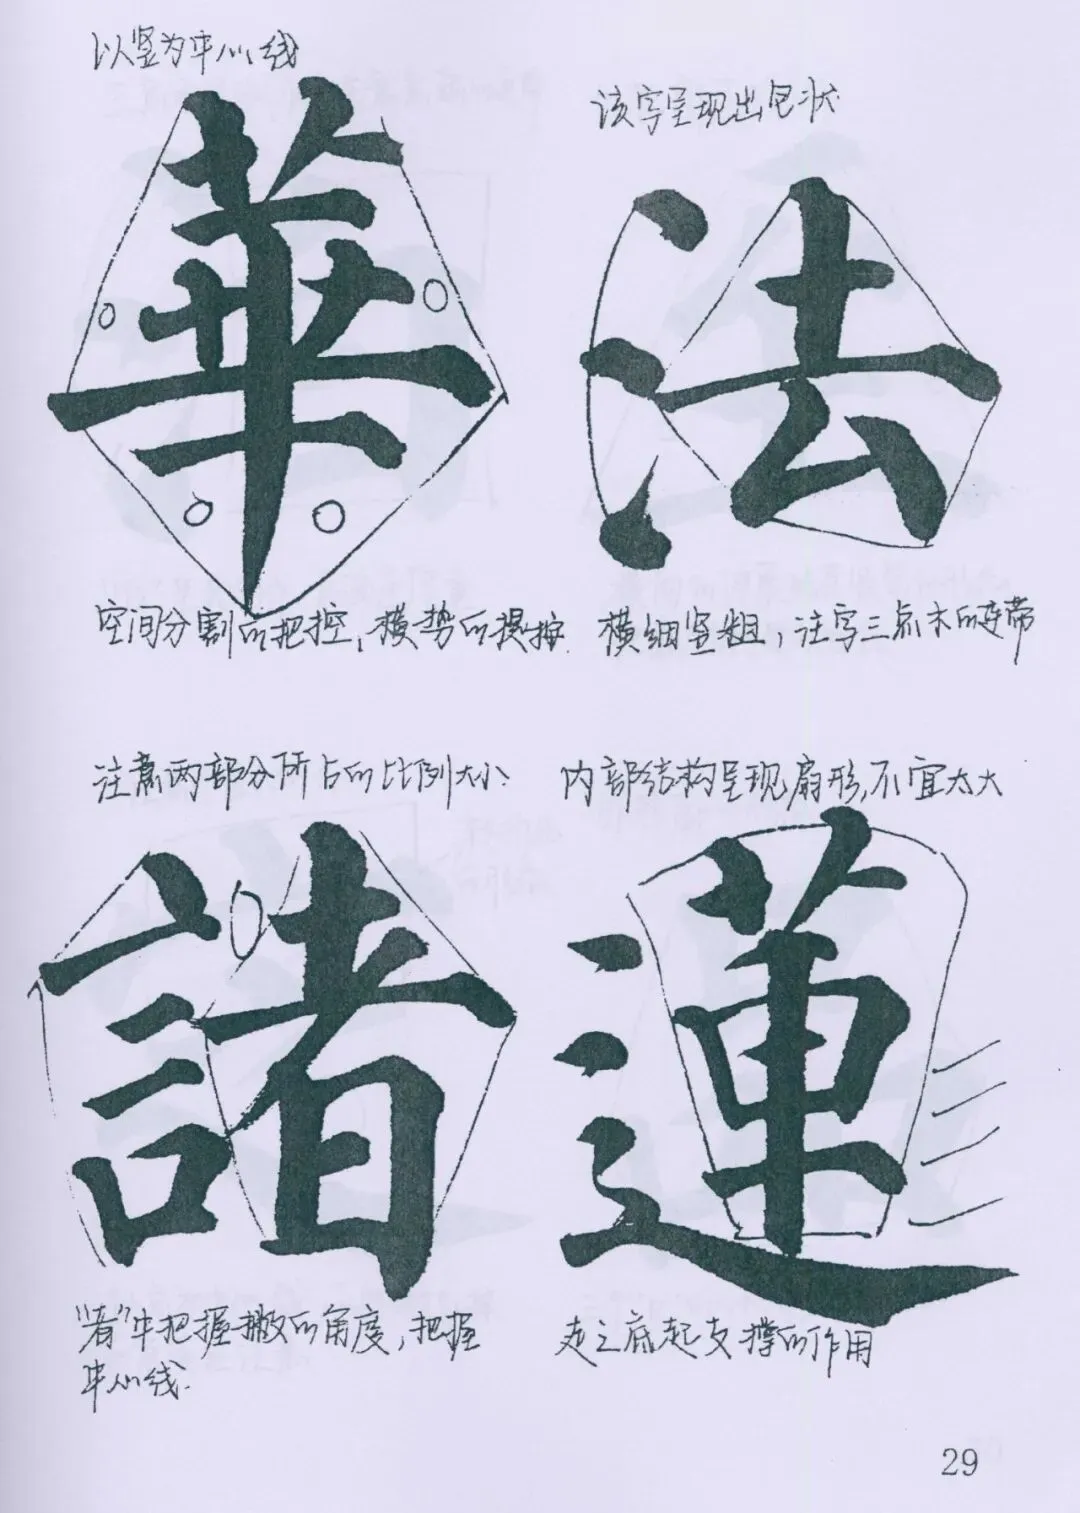 以竖为中心线
華
空间分割的把控,横势的提按.
该字呈现出包状
法
横细竖粗,注写三点水的连带
注意两部分所占的比例大小.
諸
"者"中把握撇的角度,把握
中心线.
内部结构呈现扇形,不宜太大
蓮
走之底起支撑的作用
29